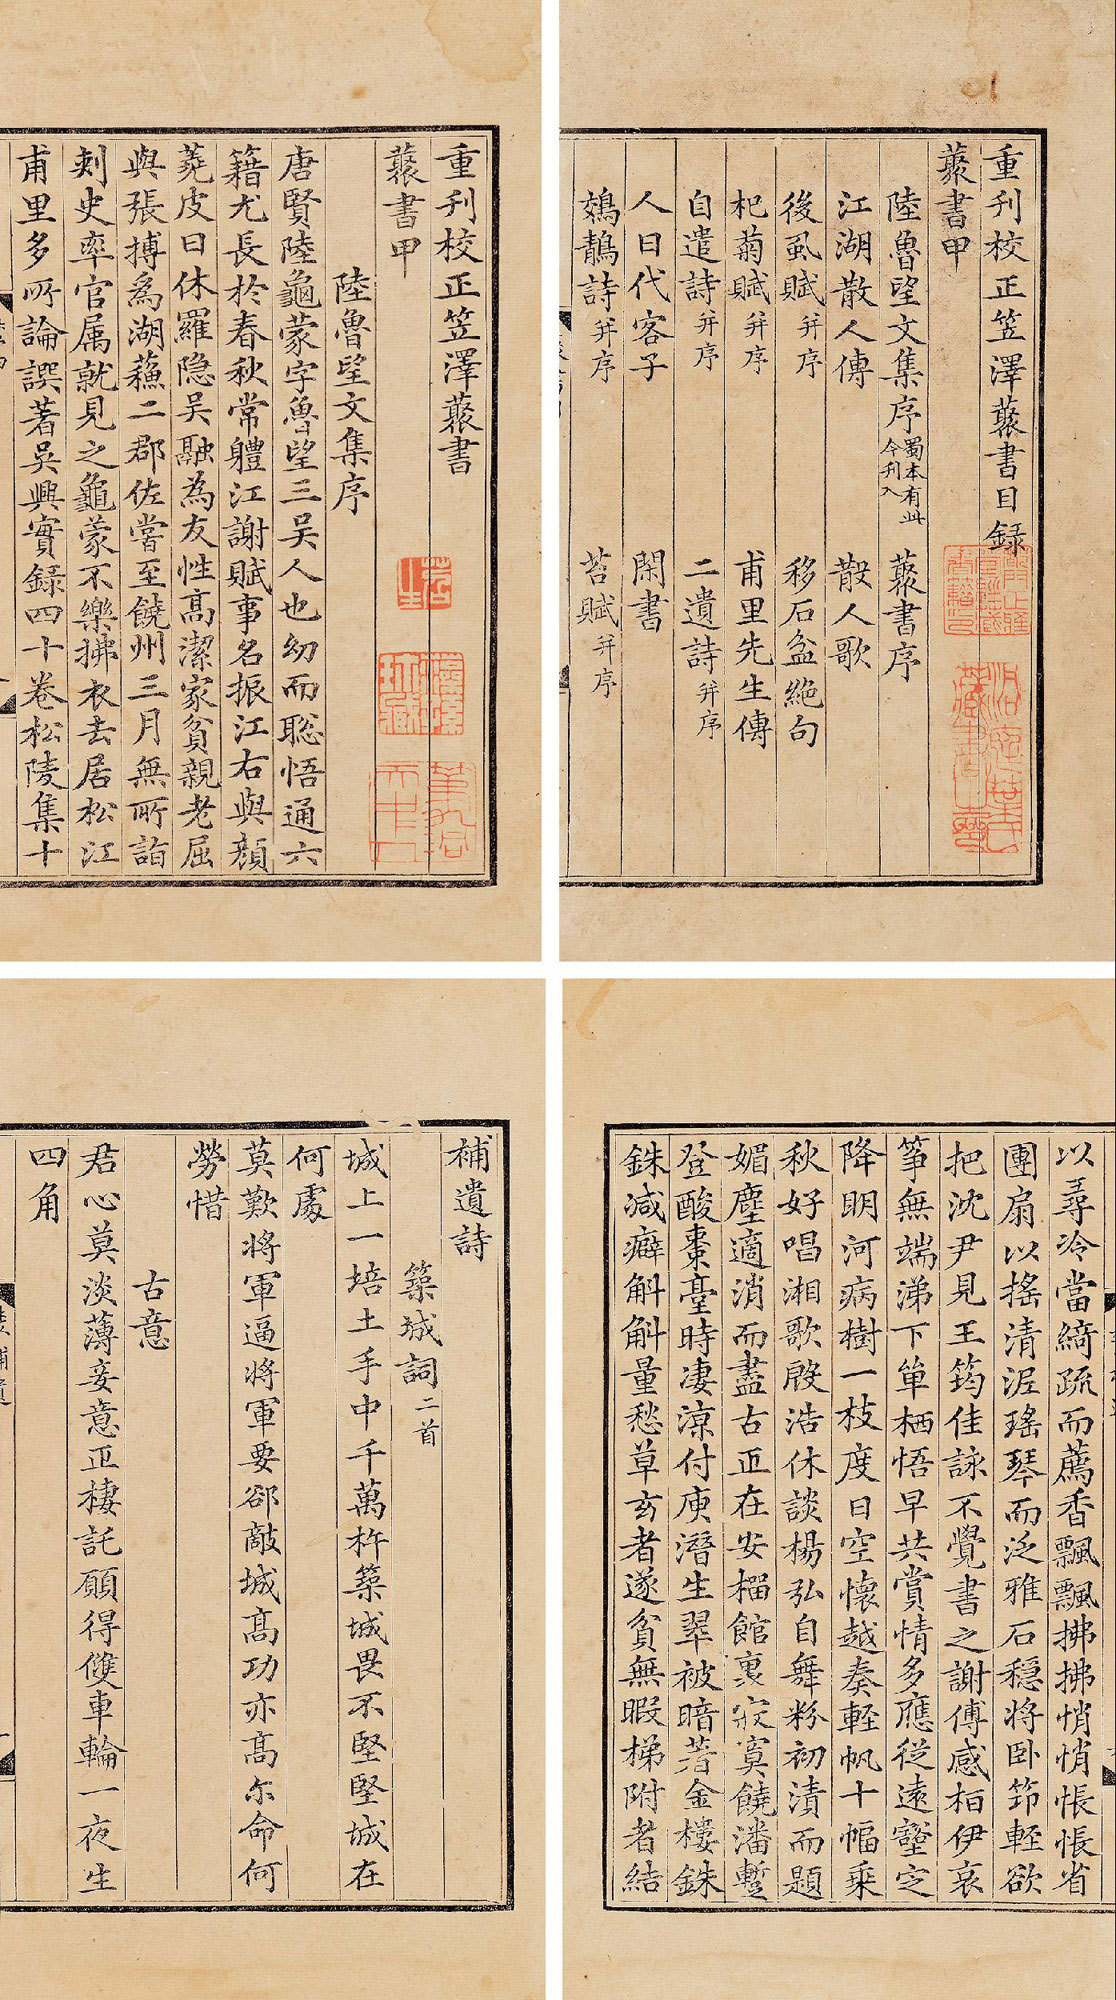 重刊校正笠澤藂書目録
藂書甲
陸魯望文集序 蜀本有此今刊入 藂書序
江湖散人傳 散人歌
後虱賦 并序 移石盆絶句
杞菊賦 并序 甫里先生傳
自遣詩 并序 二遺詩 并序
人日代客子 閑書
鵁鶄詩 并序 苔賦 并序
重刊校正笠澤藂書
藂書甲
陸魯望文集序
唐賢陸龜蒙字魯望三吴人也幼而聡悟通六
籍尤長於春秋常體江謝賦事名振江右與顔
蕘皮日休羅隐吴融為友性高潔家貧親老屈
與張搏為湖蘓二郡佐嘗至饒州三月無所詣
刺史率官属就見之龜蒙不樂拂衣去居松江
甫里多所論譔著吴興實録四十卷松陵集十
以尋冷當綺疏而薦香飄飄拂拂悄悄悵悵省
團扇以摇清渥瑤琴而泛雅石穩將卧笻輕欲
把沈尹見王筠佳詠不覺書之謝傅感桓伊哀
筝無端涕下單栖悟早共賞情多應従遠壑定
降眀河病樹一枝度日空懷越奏輕帆十幅乗
秋好唱湘歌殷浩休談楊弘自舞粉初漬而題
媚塵適消而盡古正在安榴館裏寂寞饒潘蹔
登酸棗臺時凄凉付庾潛生翠被暗著金樓銖
銖减癖斛斛量愁草玄者遂貧無暇梯附者結
補遺詩
築城詞 二首
城上一培土手中千萬杵築城畏不堅堅城在
何處
莫歎将軍逼将軍要郤敵城髙功亦髙尓命何
勞惜
古意
君心莫淡薄妾意正棲託願得雙車輪一夜生
四角